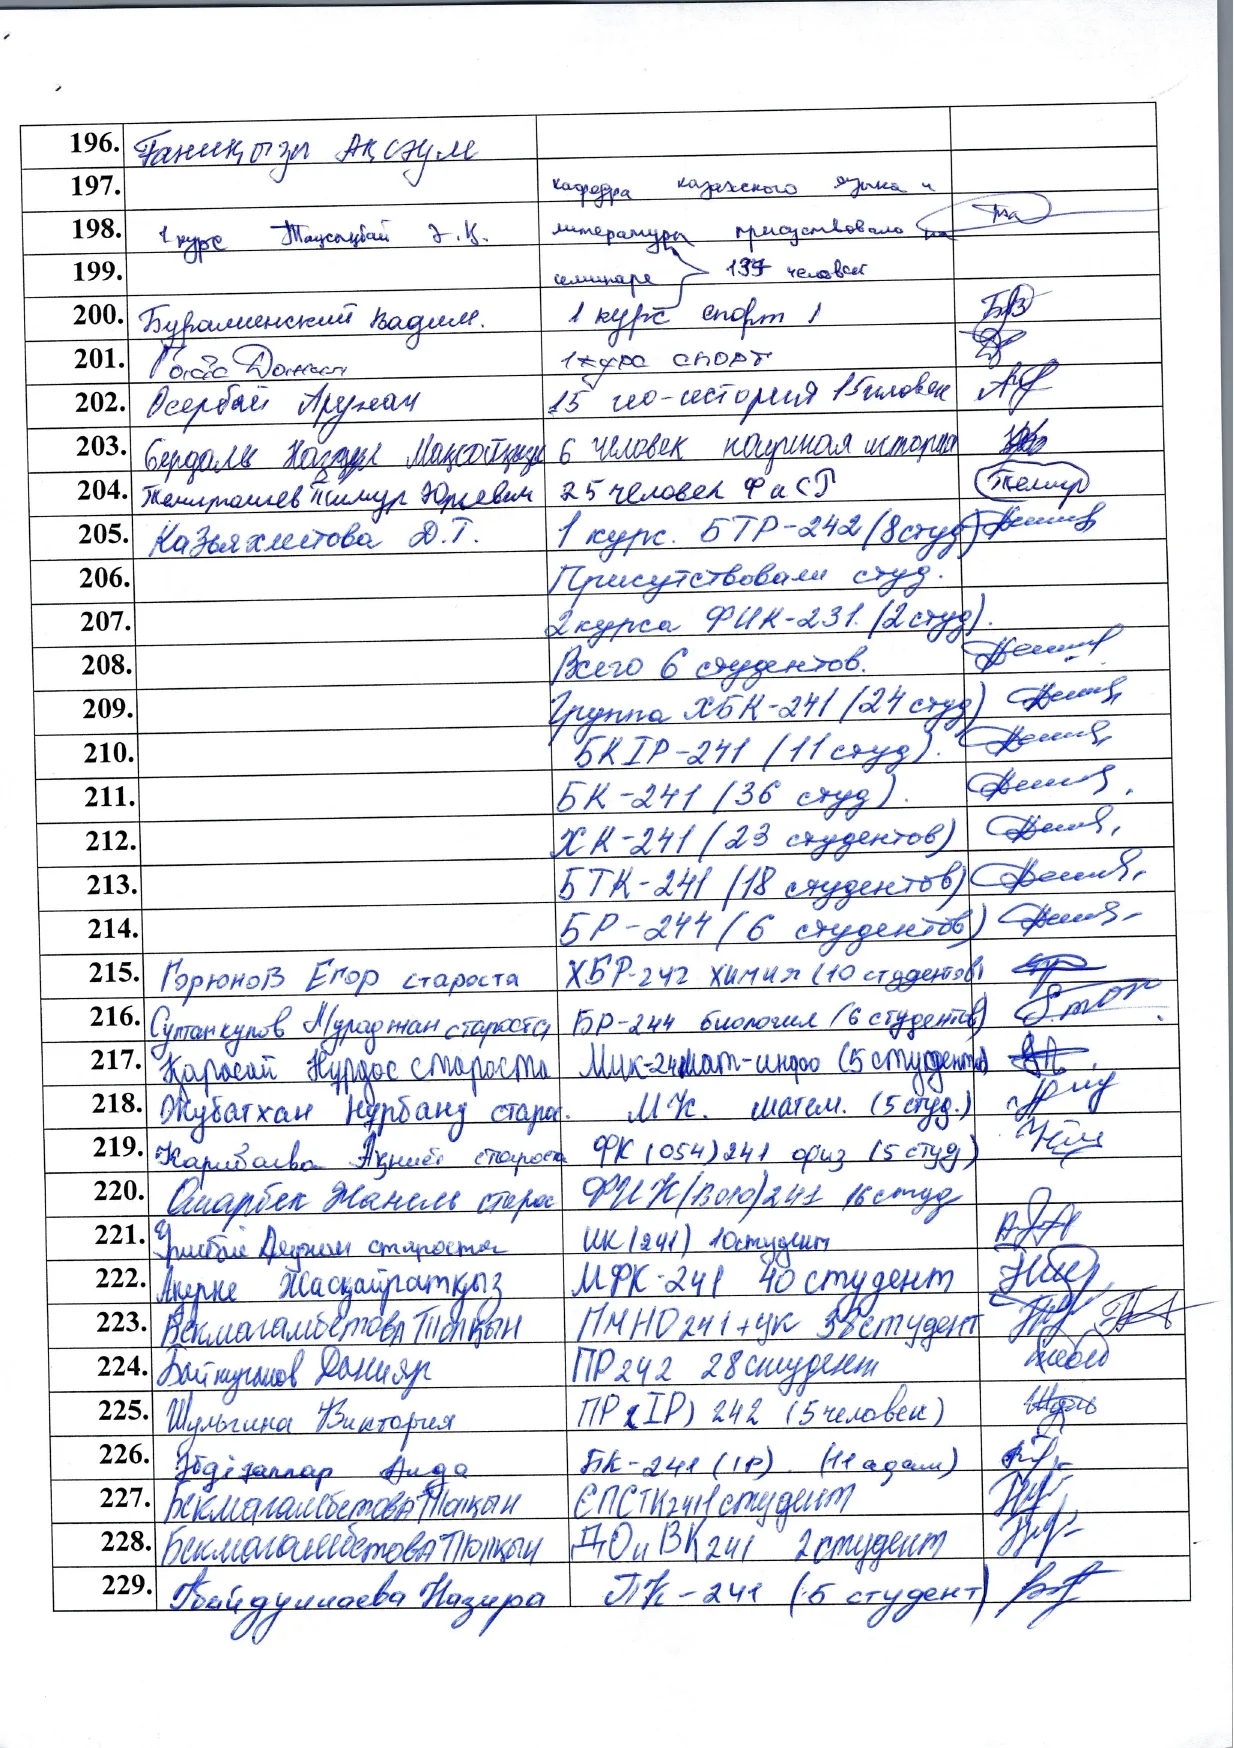 196. Ғаниқызы Ақсәуле
197. кафедра казахского языка и
198. 1 курс Тауысбай Э.Қ. литературы присутствовало на
199. семинаре 137 человек
200. Бураминский Вадим. 1 курс спорт 1 БВ
201. 1 курс спорт
202. Осербай Аружан 15 гео-история 15 человек
203. Бердалы Назгүл Мақсотқызы 6 человек научная история
204. Темирташев Тимур Юрьевич 25 человек Ф и СП Темир
205. Казыяхметова Д.Т. 1 курс. БТР-242 (8 студ)
206. Присутствовали студ.
207. 2 курса ФИК-231. (2 студ).
208. Всего 6 студентов.
209. Группа ХБК-241 (24 студ)
210. БКIР-241 (11 студ).
211. БК-241 (36 студ).
212. ХК-241 (23 студентов)
213. БТК-241 (18 студентов)
214. БР-244 (6 студентов)
215. Горюнов Егор староста ХБР-242 химия (10 студентов)
216. Султанкулов Мураджан староста БР-244 биология (6 студентов)
217. Қарасай Нұрдос староста МИК-241 мат-инфо (5 студентов)
218. Жубатхан Нұрбану старос. МК. матем. (5 студ.)
219. Карибаева Ақниет староста ФК (054) 241 физ (5 студ)
220. Омарбек Жанель старос ФИК (В010) 241 16 студ
221. староста ИК (241) 10 студент
222. Ақерке Жасқайратқыз МФК-241 40 студент
223. Бекмагамбетова Толқын ПМНО 241 + ук 38 студент
224. Байжуманов Данияр ПР 242 28 студент
225. Шульгина Виктория ПР (IР) 242 (5 человек)
226. Әбдіғаппар Аида БК-241 (IР). (11 адам)
227. Бекмагамбетова Толқын СПСТК 241 1 студент
228. Бекмагамбетова Толқын ДО и ВК 241 2 студент
229. Байдуллаева Назира ПК-241 (5 студент)